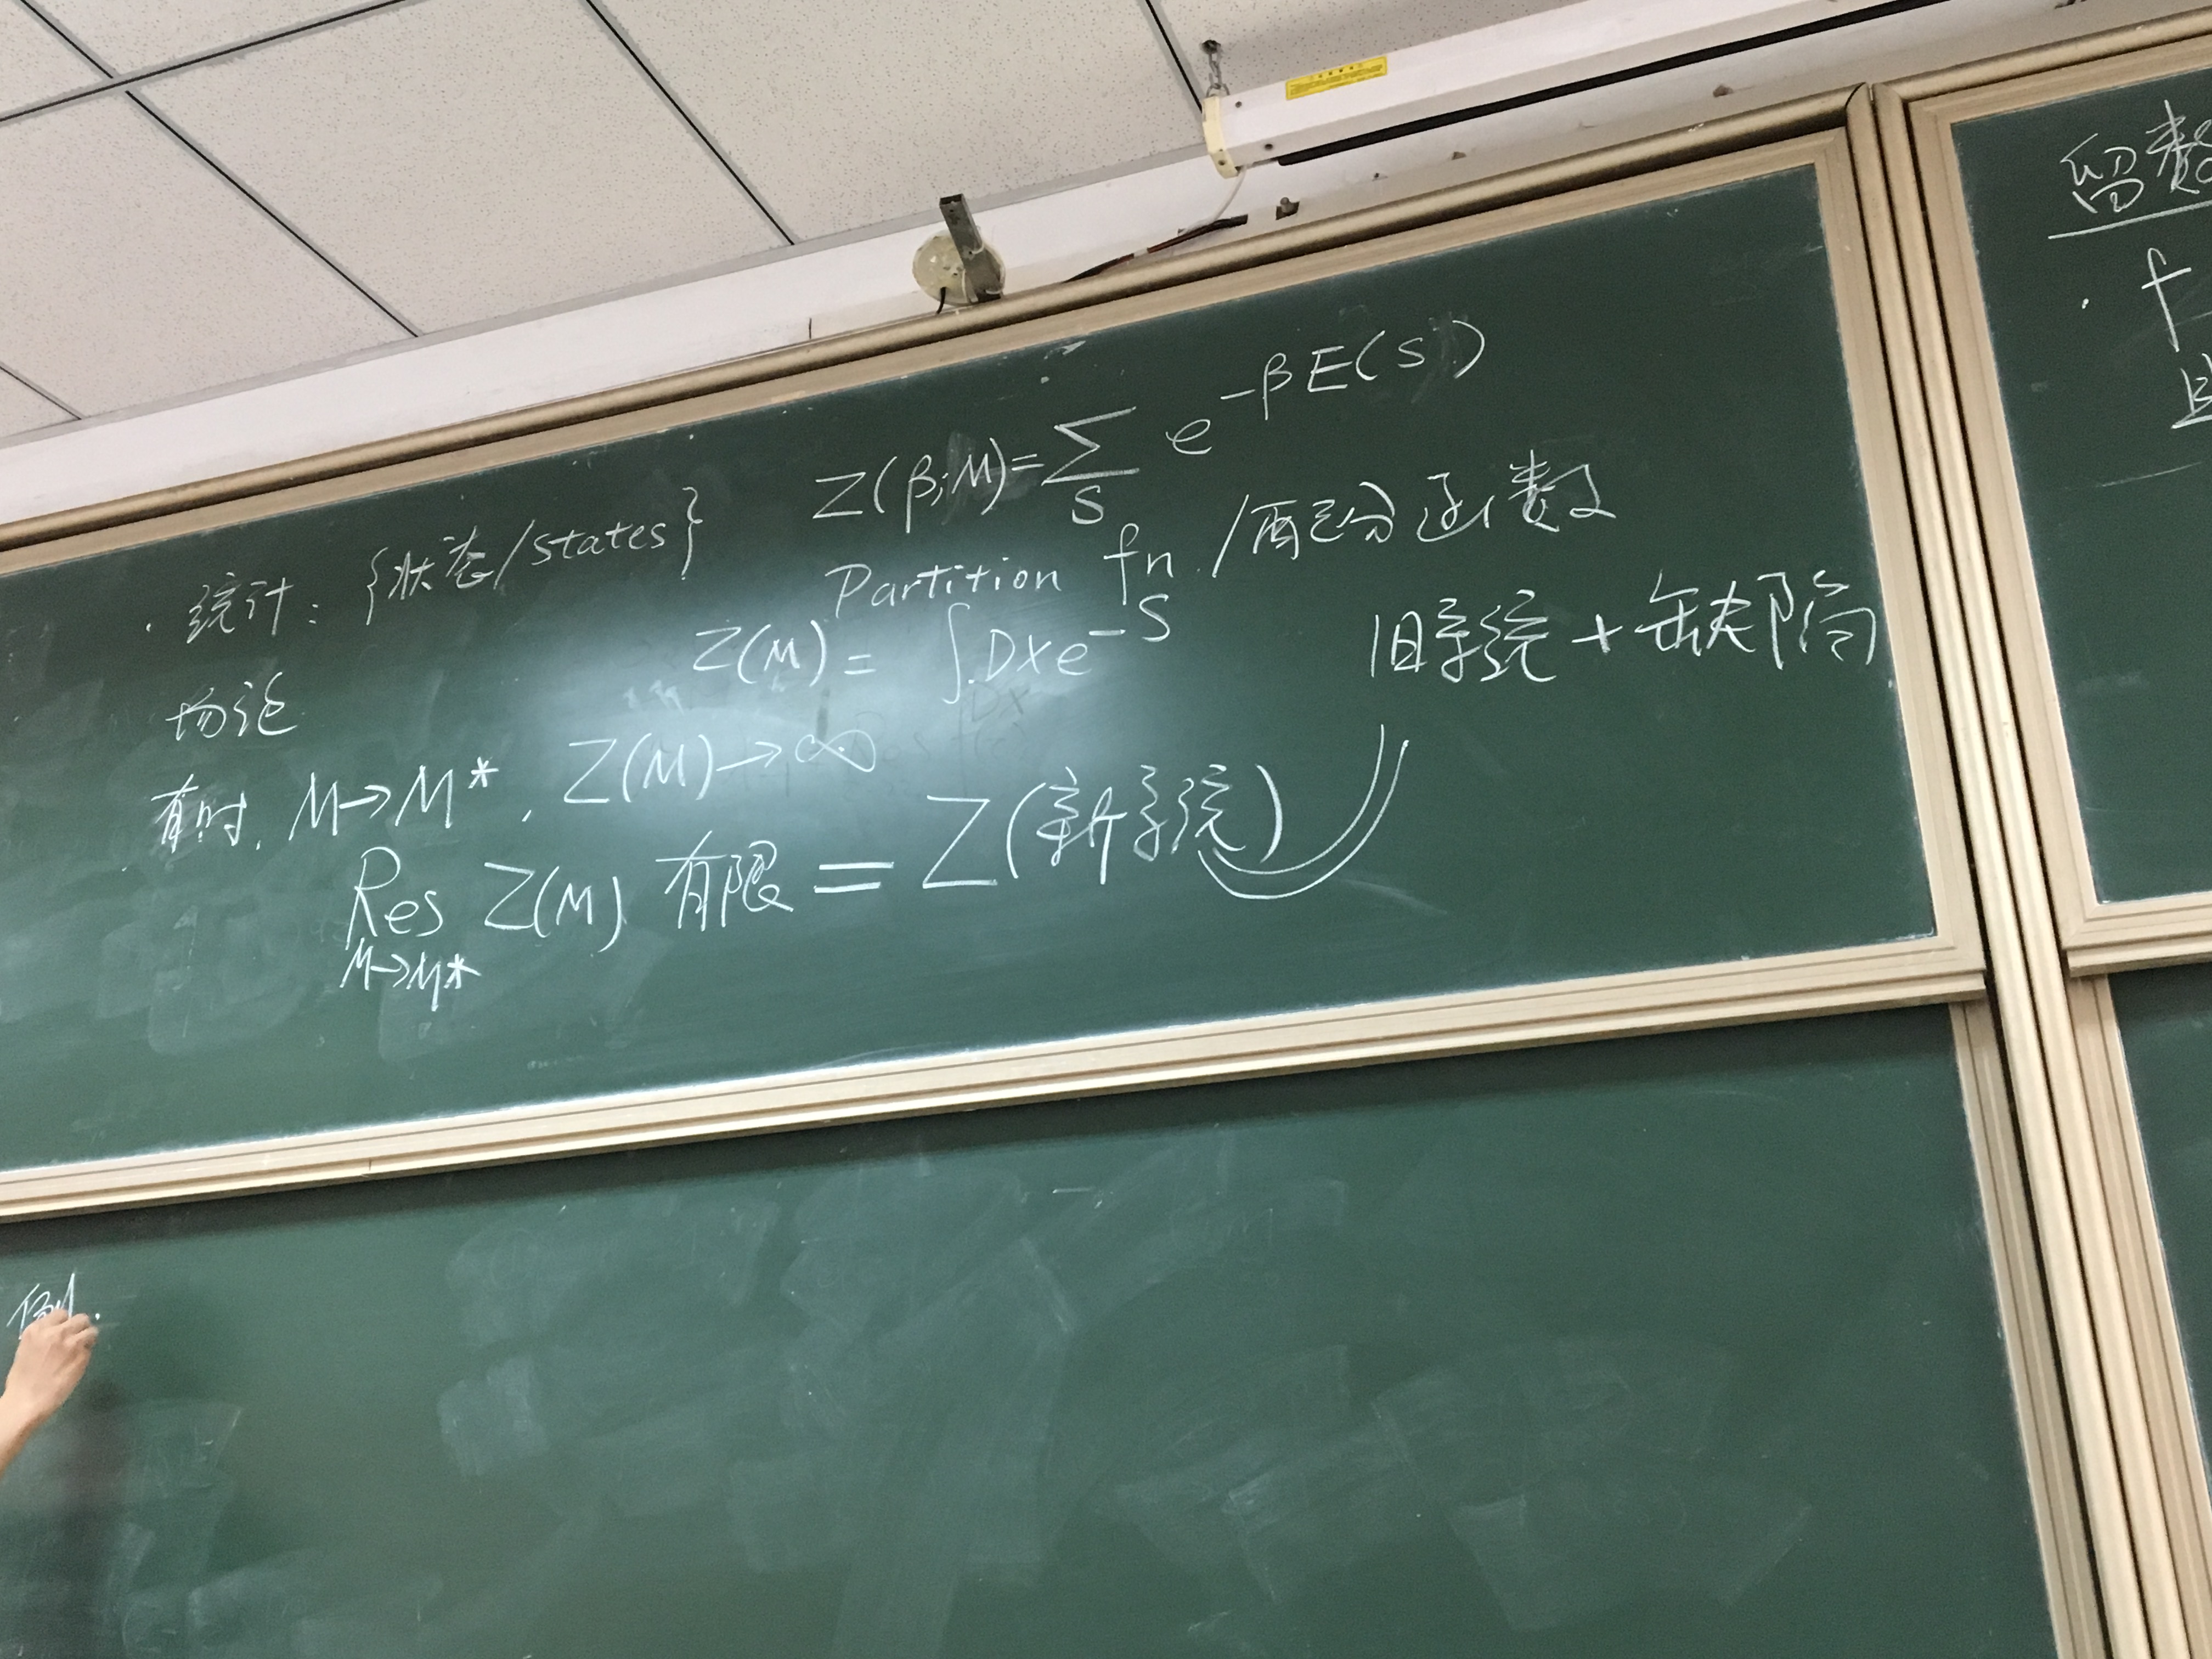 · 统计: {状态/states} Z(β;M)=∑_S e^{-βE(S)}
Partition fn./配分函数
场论 Z(M) = ∫DXe^{-S} 旧系统+缺陷
有时, M→M*, Z(M)→∞
Res_{M→M*} Z(M) 有限 = Z(新系统)
例.
留数
· f
且